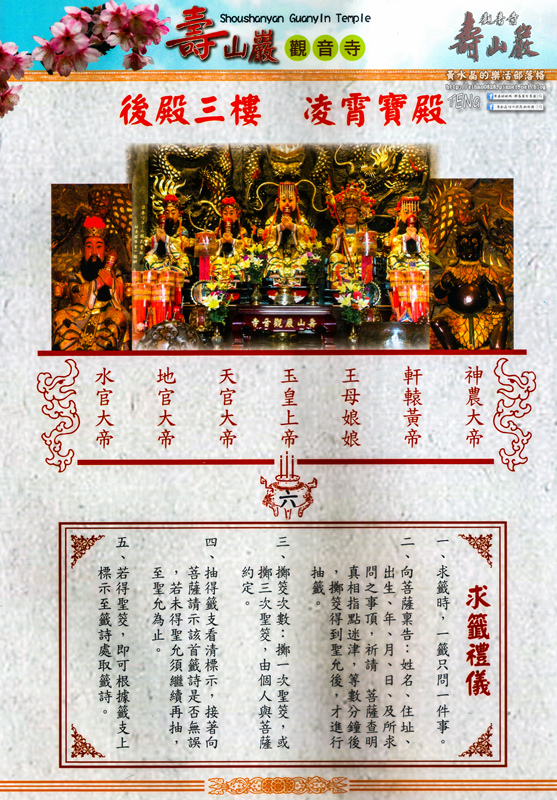 Shoushanyan GuanyIn Temple
壽山巖 觀音寺
觀音寺
壽山巖
黃水晶的樂活部落格
TENG
後殿三樓 凌霄寶殿
壽山巖觀音寺
神農大帝
軒轅黃帝
王母娘娘
玉皇上帝
天官大帝
地官大帝
水官大帝
六
求籤禮儀
一、求籤時，一籤只問一件事。
二、向菩薩稟告：姓名、住址、
出生、年、月、日、及所求
問之事項，祈請 菩薩查明
真相指點迷津，等數分鐘後
，擲筊得到聖允後，才進行
抽籤。
三、擲筊次數：擲一次聖筊，或
擲三次聖筊，由個人與菩薩
約定。
四、抽得籤支看清標示，接著向
菩薩請示該首籤詩是否無誤
，若未得聖允須繼續再抽，
至聖允為止。
五、若得聖筊，即可根據籤支上
標示至籤詩處取籤詩。